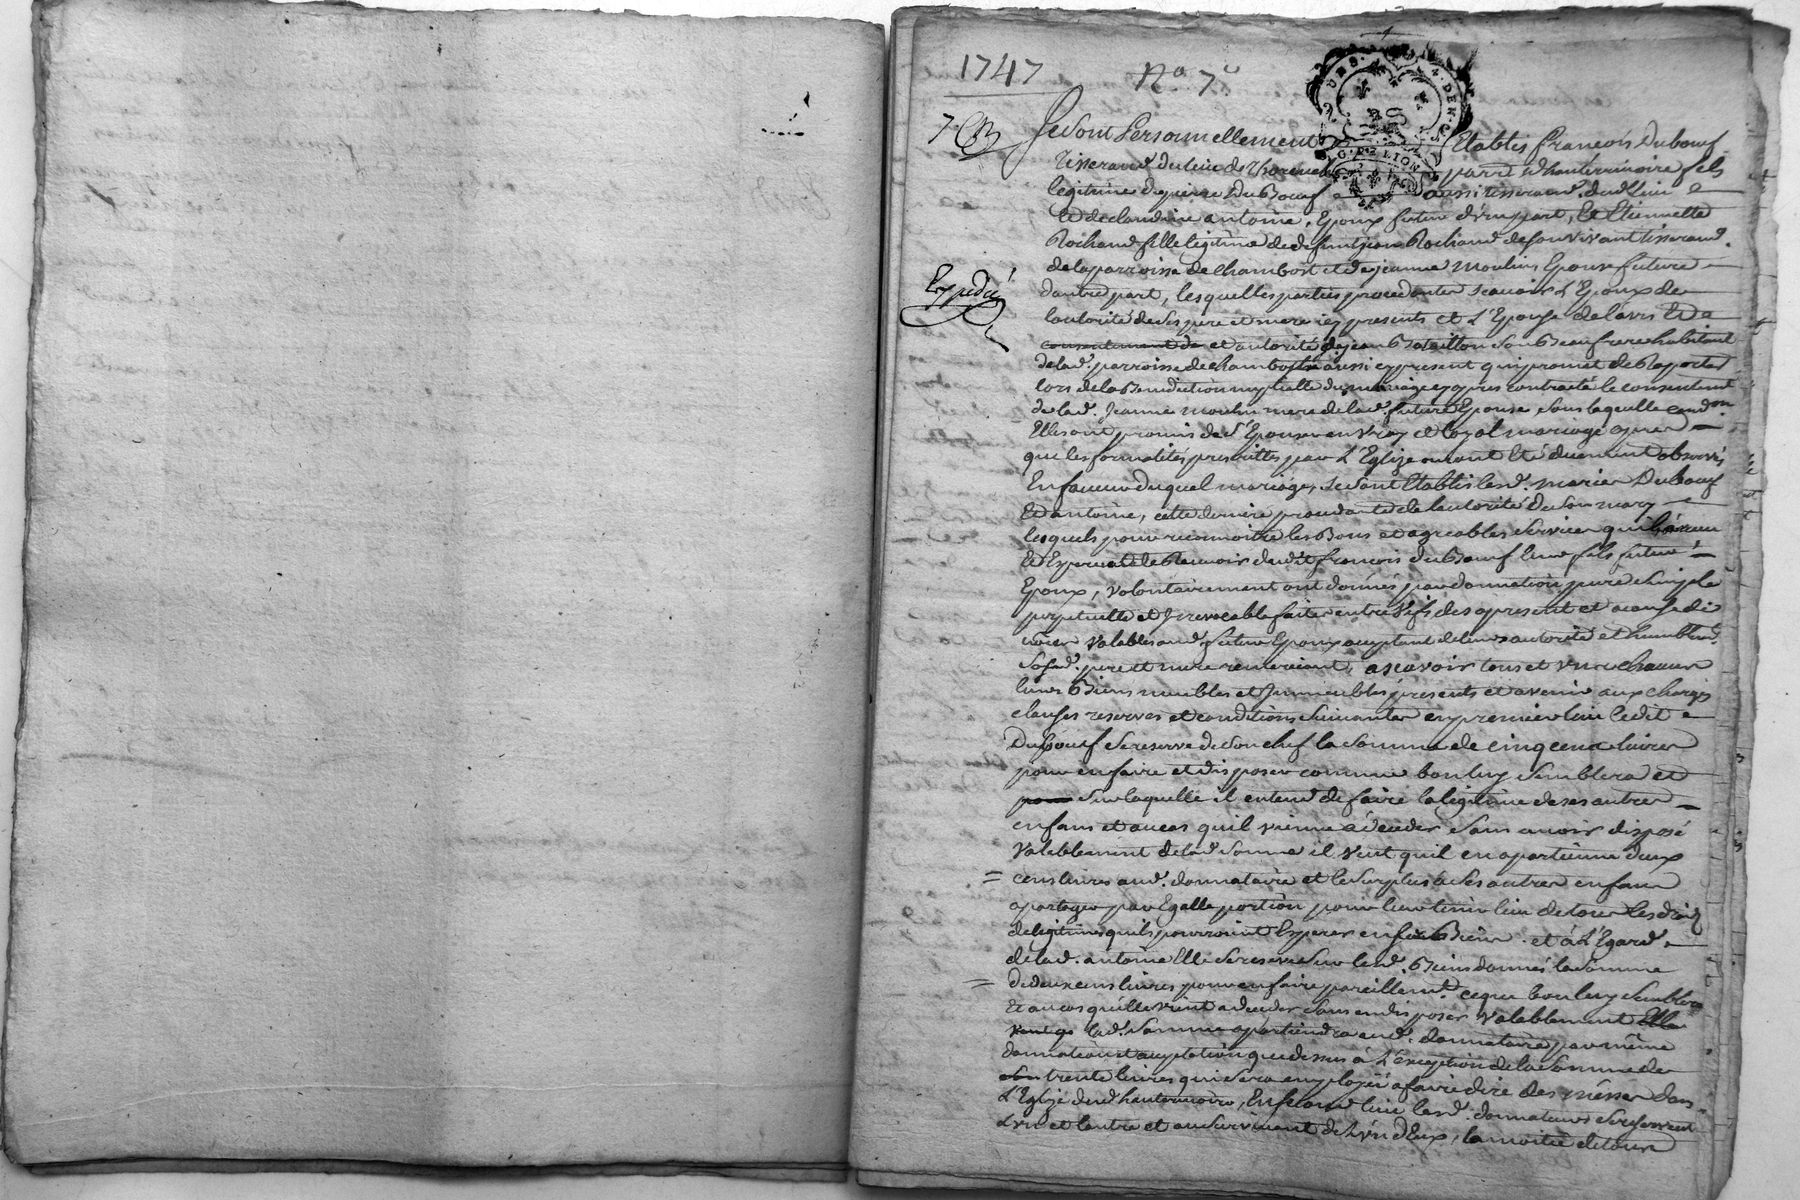 1747
No. 7e
7
Se sont Personnellement Etablis francois Duboeuf
tisserand du lieu de parr. d'hauterivoire fils
legitime de pierre Du Boeuf aussi tisserand dud. lieu
Et de claudine antoine, Epoux futur d'une part, Et Etiennette
Rochand fille legitime de defunt jean Rochand de son vivant tisserand
de la parroisse de Chambost et de jeanne Moulin Epouse future
Expedié
d'autre part, lesquelles parties procedantes scavoir L'Epoux de
l'autorité de ses pere et mere icy presents et L'Epouse de l'avis Et de
consentement de et autorité de jean Bataillon son Beaufrere habitant
de lad. parroisse de chambost aussi cy present qui promet de Raporter
lors de la Benediction nuptialle du mariage cy apres contracté le consentemt
de lad. Jeanne moulin mere de lad. future Epouse sous laquelle condon
Elles ont promis de S'Epouser en vray et loyal mariage apres
que les formalités prescrittes par L'Eglize auront Eté duement observés
En faveur duquel mariage, se sont Etablis lesd. mariés Duboeuf
Et antoine, cette derniere procedante de l'autorité de son mary
lesquels pour reconnoitre les Bons et agreables services qu'ils ont reçu
Et Esperent de Recevoir dudit francois du Boeuf leur fils futur
Epoux, volontairement ont donnés par donnation pure simple
perpetuelle et Irrevocable faite entre vifs des apresent et a cause de
noces valable aud. futur Epoux acceptant de leur autorité et humblemt
sesd. pere et mere remerciant, ascavoir tous et un chacun
leurs Biens meubles et Immeubles presents et avenir aux charges
clauses reserves et conditions suivantes en premier lieu ledit
Duboeuf se reserve de son chef la somme de cinq cens livres
pour en faire et disposer comme bon luy semblera et
pour sur laquelle il entend de faire la legitime de ses autres
enfans et au cas qu'il vienne a deceder sans avoir disposé
valablement de lad. somme il veut qu'il en apartienne deux
= cens livres aud. donnataire et le surplus a ses autres enfans
a partager par Egalle portion pour leur tenir lieu de tous les droits
de legitime qu'ils pourroient Esperer en ses Biens. et à L'Egard
de lad. antoine Elle se reserve sur lesd. Biens donnés la somme
= de deux cens livres pour en faire pareillemt. ce que bon luy semblera
Et au cas qu'elle vient a deceder sans en disposer valablement Elle
veut que lad. somme apartiendra aud. donnataire par même
donnation et acceptation que dessus à L'exception de la somme de
trente livres qui sera employée a faire dire des messes dans
L'Eglize dud. hauterivoire, En second lieu lesd. donnateurs se reservent
L'un et l'autre et au survivant de L'un d'Eux, la moitié de tous